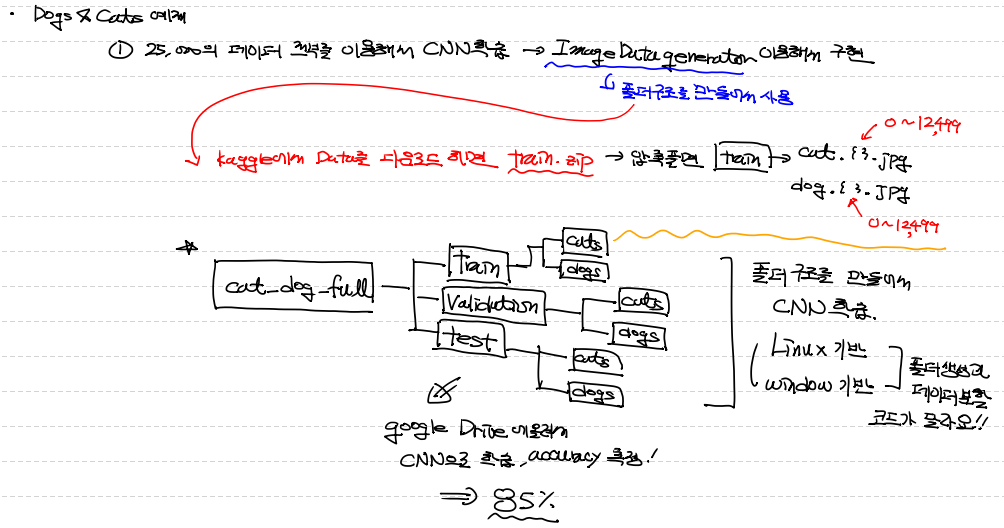 · Dogs & Cats 예제
① 25,000의 데이터 전부를 이용해서 CNN학습 → ImageDatagenerator 이용해서 구현
↳ 폴더구조를 만들어서 사용
kaggle에서 Data를 다운로드 하면 train.zip → 압축풀면 train → cat.{}.jpg
0~12,499
dog.{}.jpg
0~12,499
cat_dog_full
train
cats
dogs
validation
cats
dogs
test
cats
dogs
폴더구조를 만들어서
CNN 학습.
Linux 기반
window 기반
폴더생성과
데이터분할
코드가 달라요!!
google Drive에 올려서
CNN으로 학습, accuracy 측정!
⇒ 85%